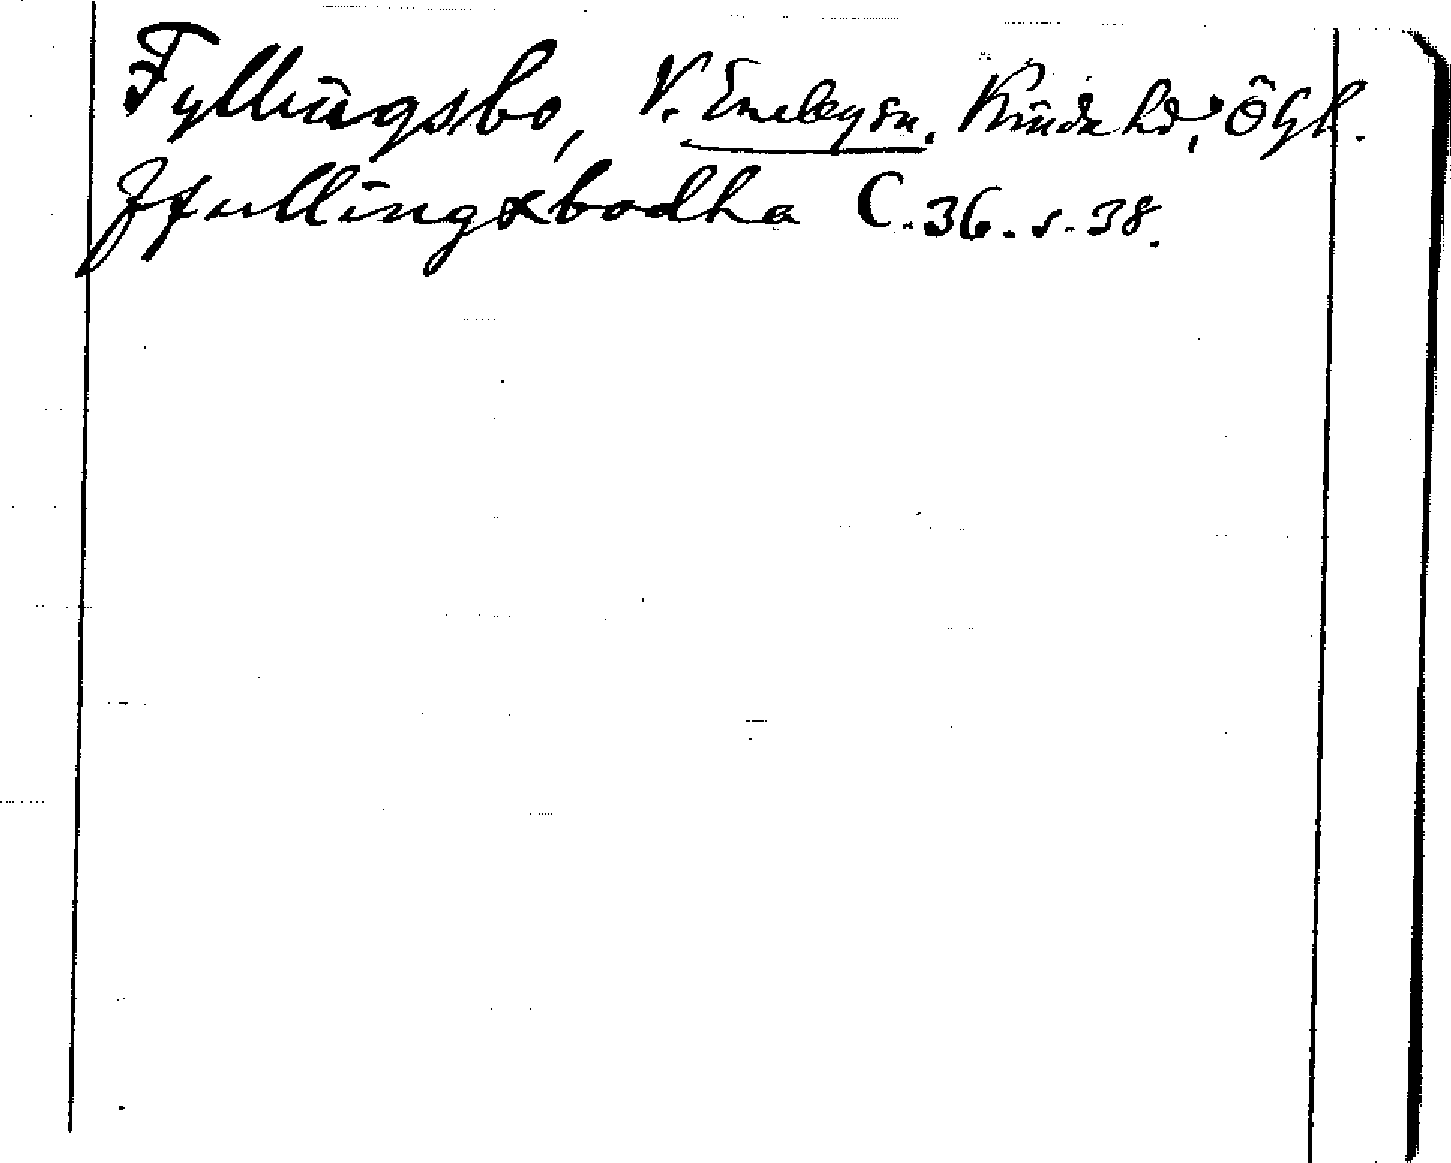 Fyllingsbo, V. Eneby sn. Kinda hd, Ögl.
ffullingxbodha C.36. s. 38.